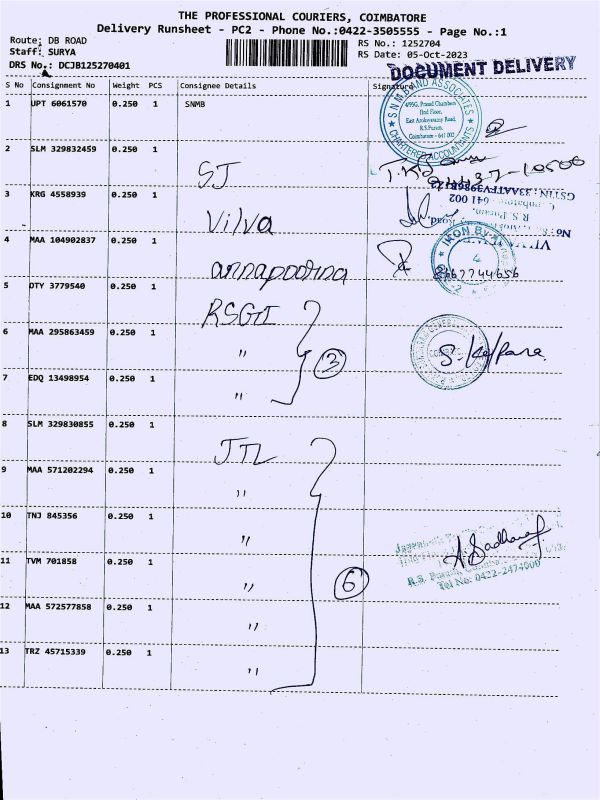 THE PROFESSIONAL COURIERS, COIMBATORE
Delivery Runsheet - PC2 - Phone No.:0422-3505555 - Page No.:1
Route: DB ROAD
RS No.: 1252704
Staff: SURYA
RS Date: 05-Oct-2023
DRS No.: DCJB125270401
DOCUMENT DELIVERY
S No Consignment No Weight PCS Consignee Details Signature
1 UPT 6061570 0.250 1 SNMB
S N M B AND ASSOCIATES
4/95G, Prasad Chambers
IInd Floor,
East Arokiasamy Road,
R.S.Puram,
Coimbatore - 641 002
CHARTERED ACCOUNTANTS
2 SLM 329832459 0.250 1 SJ
3 KRG 4558939 0.250 1 Vilva
641 002
R.S. Puram,
4 MAA 104902837 0.250 1 annapoorna
5 DTY 3779540 0.250 1 RSGI
6 MAA 295863459 0.250 1 "
3
7 EDQ 13498954 0.250 1 "
8 SLM 329830855 0.250 1 JTL
9 MAA 571202294 0.250 1 "
10 TNJ 845356 0.250 1 "
R.S. Puram,
Tel No: 0422-2474000
11 TVM 701858 0.250 1 "
6
12 MAA 572577858 0.250 1 "
13 TRZ 45715339 0.250 1 "